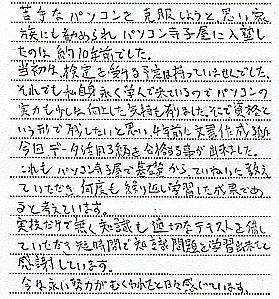 苦手なパソコンを克服しようと思い家
族にも勧められパソコン寺子屋に入塾し
たのは約10年前でした。
当初は、検定を受ける予定は持っていませんでした。
それでも私自身永く学んで来ているのでパソコンの
実力も少しは向上した気持も有りました。そこで資格と
いう形で残したいと思い、4年前に文書作成3級
今回データ活用3級を合格する事が出来ました。
これもパソコン寺子屋で基礎からていねいに教え
ていただき何度も繰り返し学習した成果であ
ると考えています。
実技だけで無く知識も適切なテキストを促し
ていただき短時間で知識問題を学習出来たと
感謝しています。
今後永い努力がむくわれたと日々感じています。